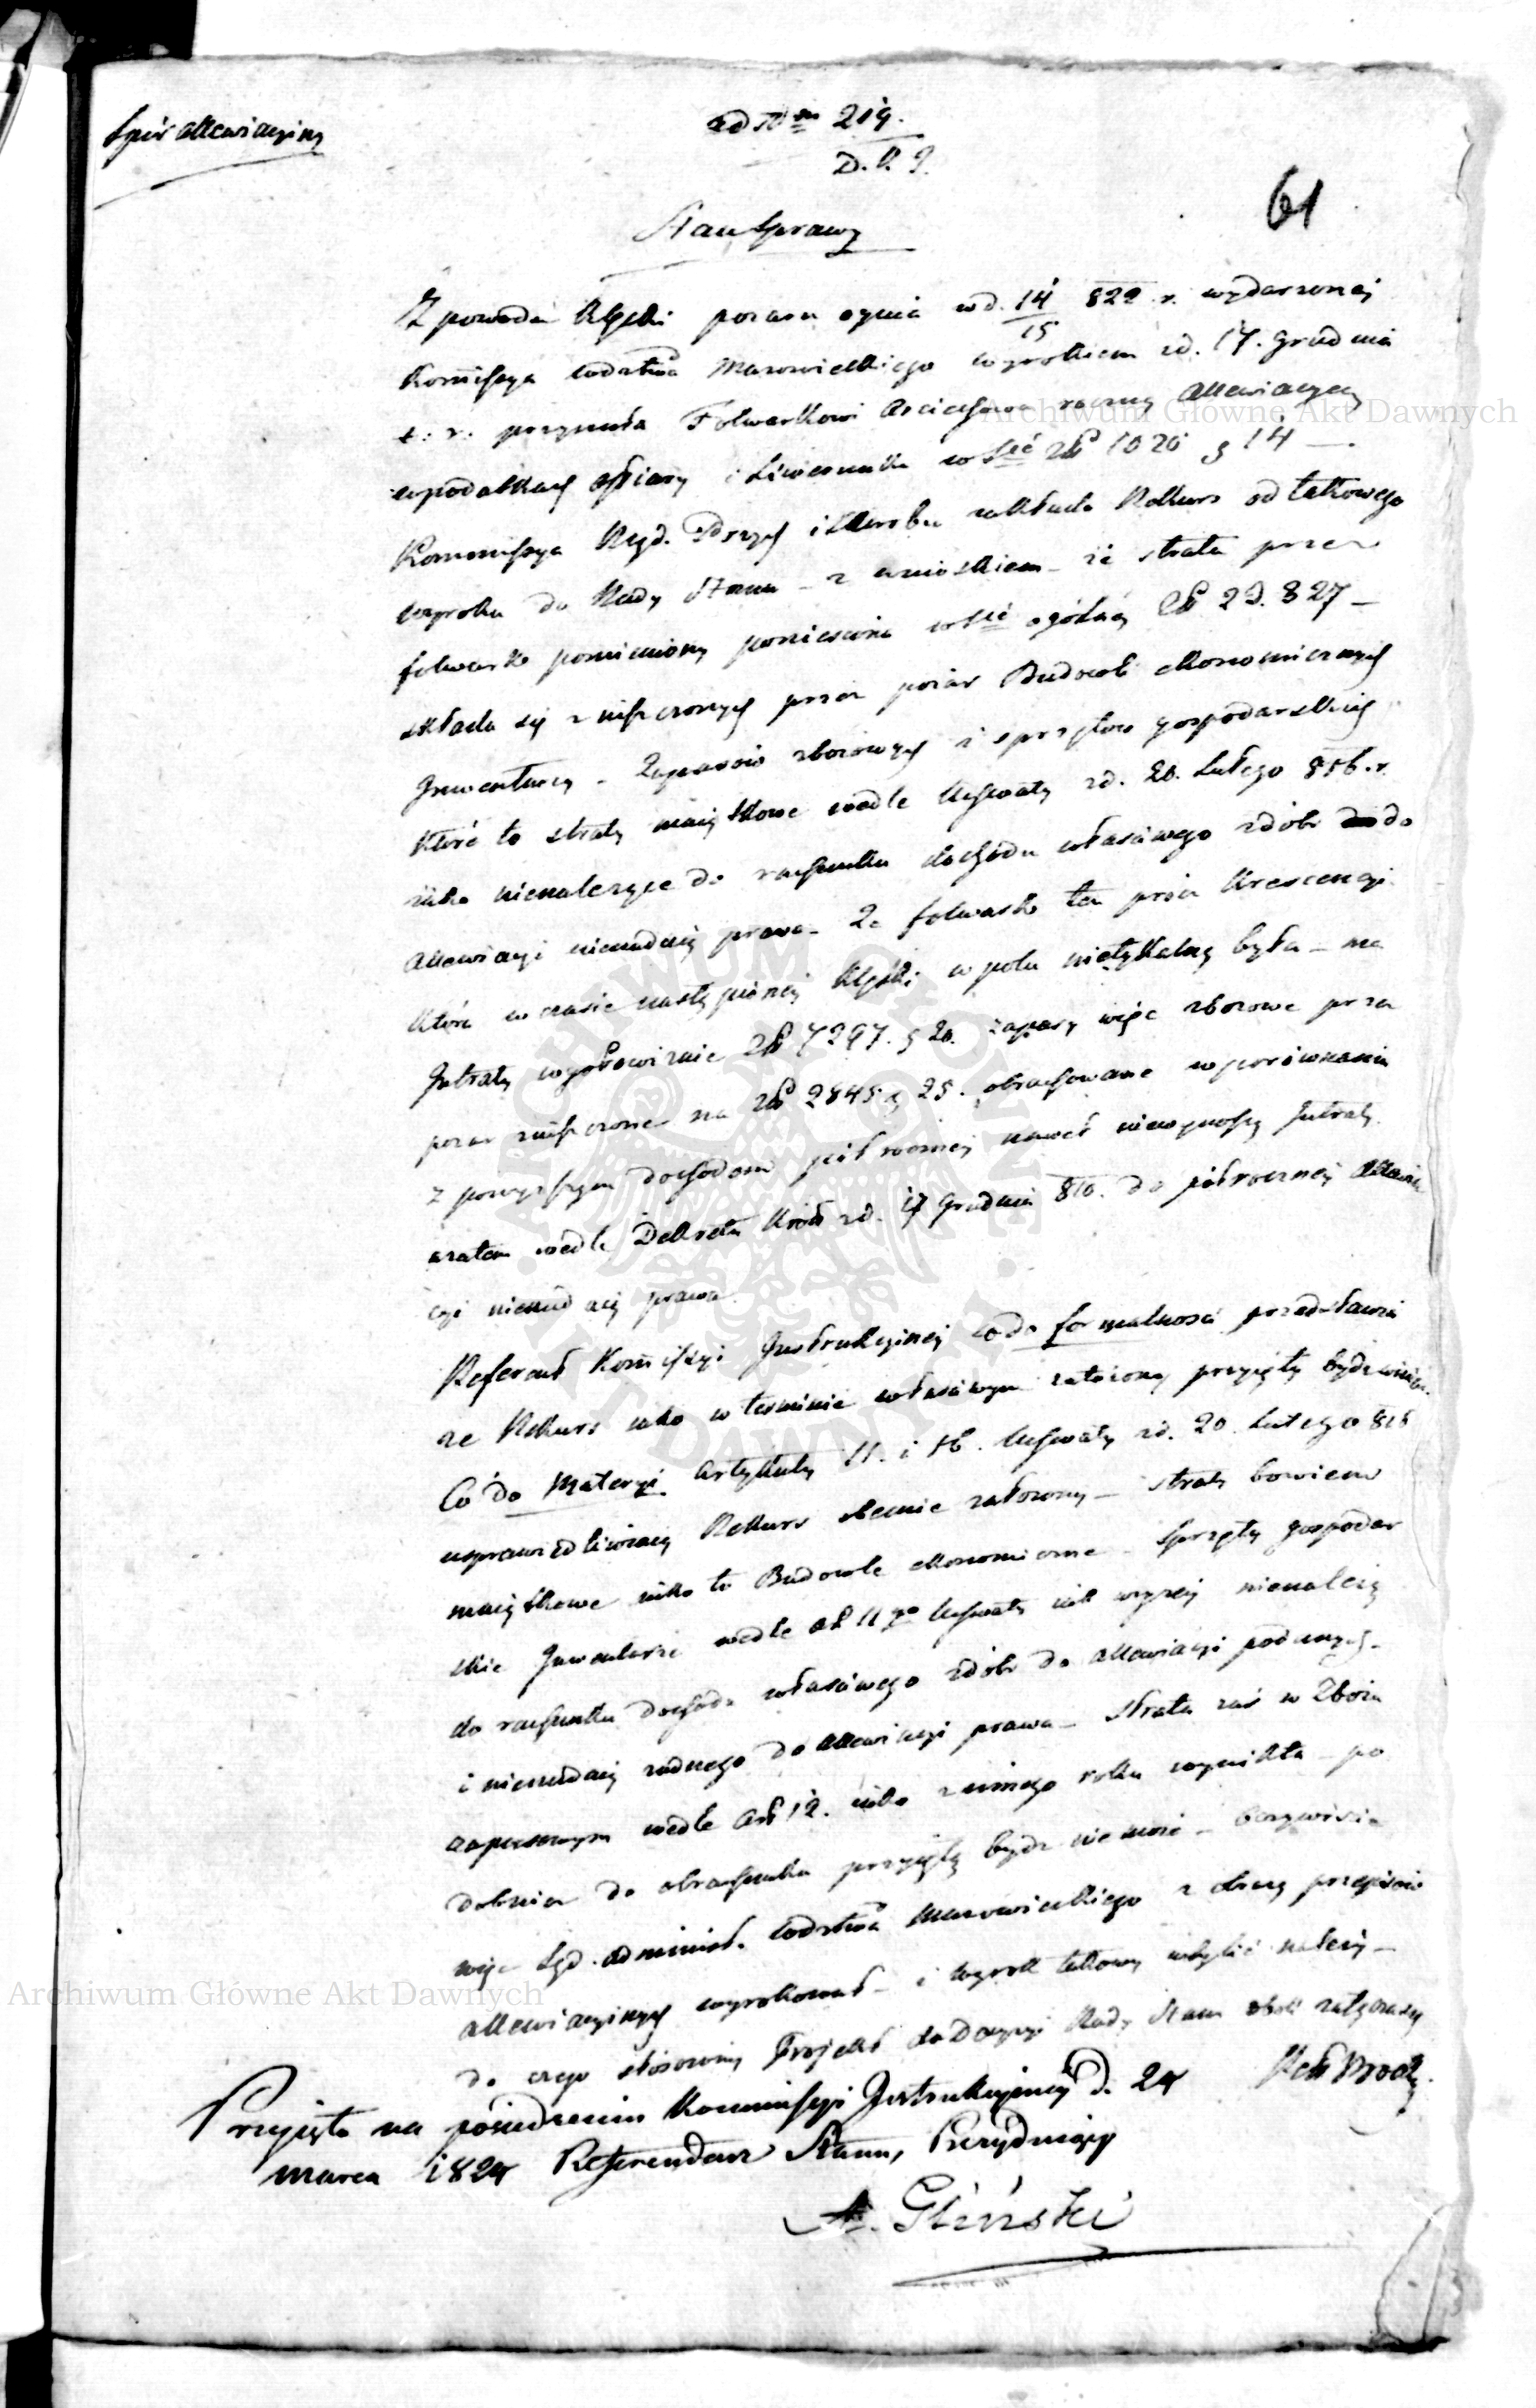 Spór allewiacyiny
ad Nrm 219.
D. K. J.
61
Stan Sprawy
Z powodu klęski pożaru ognia w d. 14/15 822 r. wydarzonej
Kommissya Wdztwa Mazowieckiego wyrokiem z d. 17. Grudnia
t: r: przyznała Folwarkowi roczną allewiacyę
w podatkach ofiary i Liwerunku w Ści złp 1020 g 14 —.
Kommissya Rząd. Przych i Skarbu zakłada Rekurs od takowego
wyroku do Rady Stanu – z wnioskiem – że strata przez
folwark pomieniony poniesiona w Ści ogólnej złp 29.827 –
składa się z zniszczonych przez pożar Budowli ekonomicznych
Inwentarzy – Zapasów zbożowych i sprzętów gospodarskich
które to straty maiątkowe wedle Uchwały z d. 20. Lutego 816. r.
iako nienależące do rachunku dochodu właściwego z dóbr do
allewiacyi nienadaią prawa – Że folwark ten prócz Krescencyi
która w czasie nastąpionej klęski w polu nietykalną była – ma
Intraty wysiewie złp 7297. g 20. zapasy więc zbożowe przez
pożar zniszczone na złp 2845 g 25. obrachowane w porównaniu
z powyższym dochodem półrocznej nawet niewynoszą Intraty
a zatem wedle Dekretu Król z d. 17 Grudnia 810. do półrocznej allewia
cyi nienadaią prawa
Referent Kommissyi Instrukcyinej co do formalności przedstawia
że Rekurs iako w terminie właściwym założony przyięty bydź winien.
Co do Materyi Artykuły 11. i 16. Uchwały z d. 20. Lutego 816
usprawiedliwiaią Rekurs obecnie założony – straty bowiem
maiątkowe iako to Budowle ekonomiczne – sprzęty gospodar
skie Inwentarze wedle art 11go Uchwały iak wyżej nienależą
do rachunku dochodu właściwego z dóbr do allewiacyi podanych –
i nienadaią żadnego do allewiacyi prawa – Strata zaś w Zbożu
zapasowym wedle Art 12. iako z innego roku wynikła – po
dobnież do obrachunku przyiętą bydź nie może – Oczywiście
więc Sąd. administ. Wdztwa Mazowieckiego z obrazą przepisów
allewiacyinych wyrokował – i wyrok takowy uchylić należy –
do czego stósowny Projekt do Decyzyi Rady Stanu obok załączony
Przyięto na posiedzeniu Kommissyi Instrukcyinej d. 24
marca 1824 Referendarz Stanu, Prezyduiący
A. Gliński